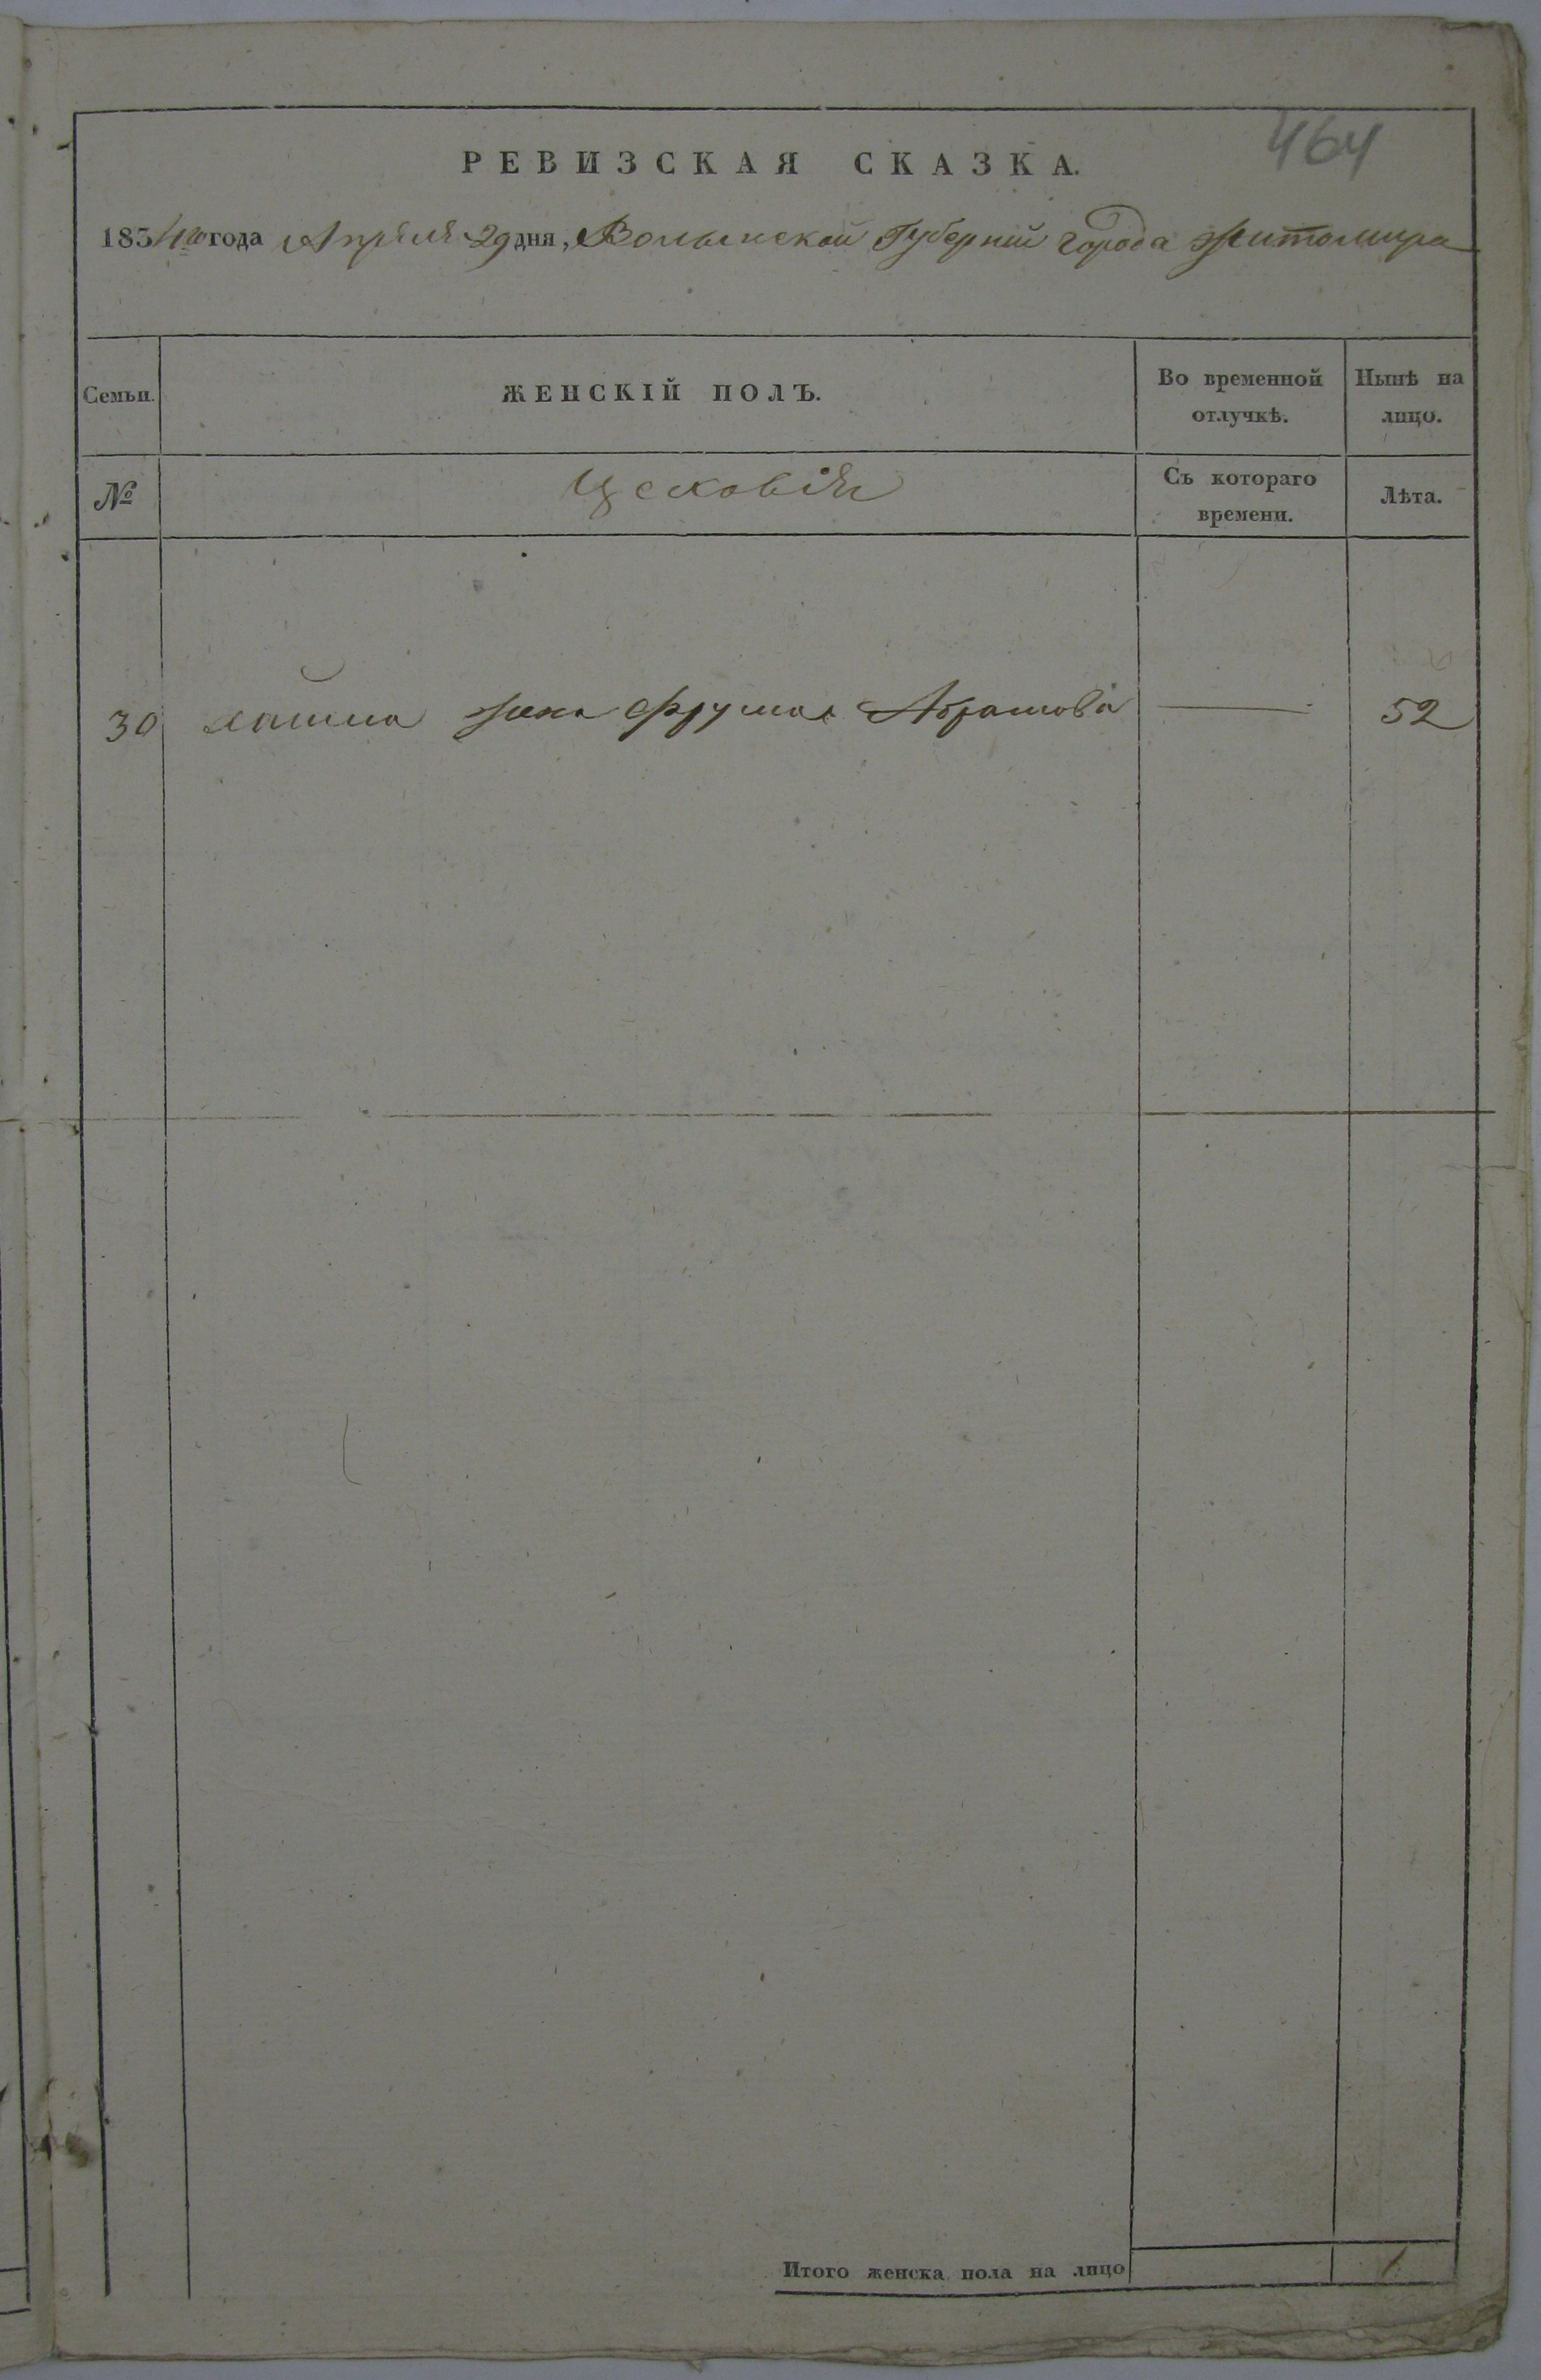 464
РЕВИЗСКАЯ СКАЗКА.
1834го года Апреля 29 дня, Волынской Губернии города Житомира
Семьи.
ЖЕНСКІЙ ПОЛЪ.
Во временной отлучкѣ.
Нынѣ на лицо.
№
Съ котораго времени.
Лѣта.
30 жена Фрума Абрамова — 52
Итого женска пола на лицо 1